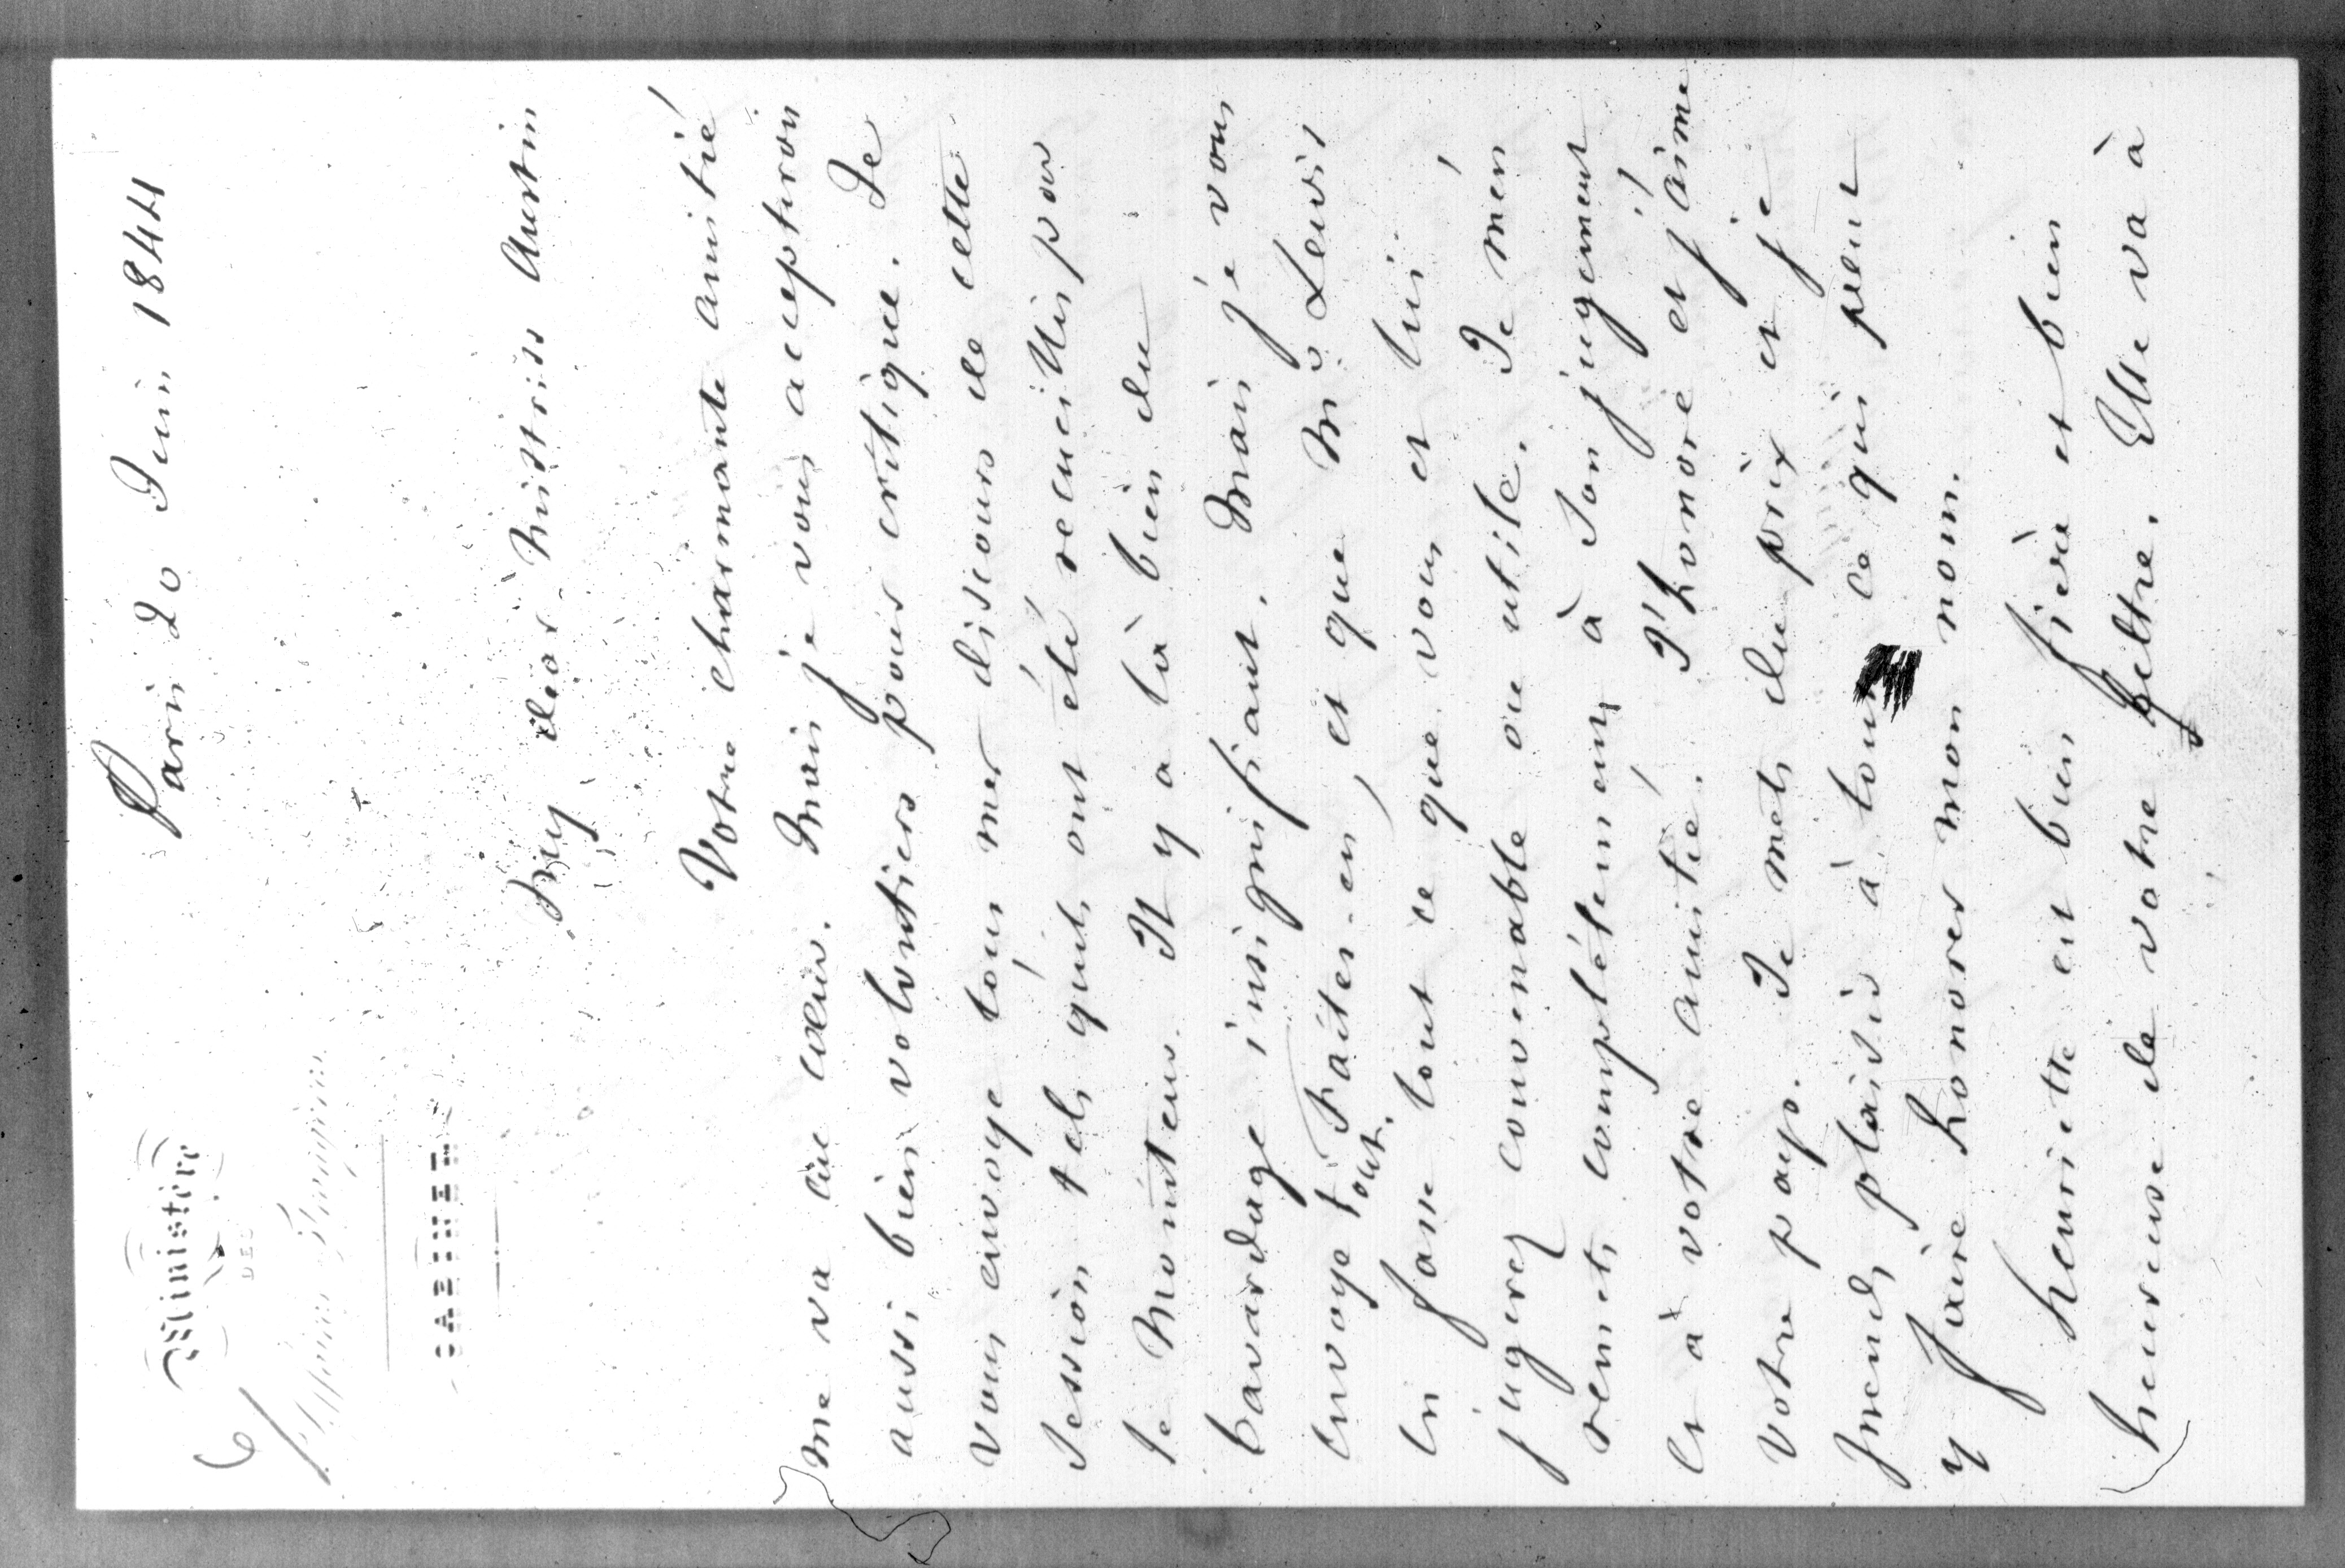 6
Ministère
DES
Affaires Etrangères
CABINET
Paris 20 Juin 1844
My dear Mistriss Austin
Votre charmante amitié
me va au cœur. Mais je vous accepterois
aussi bien volontiers pour critique. Je
vous envoye tous mes discours de cette
session tels qu'ils ont été recueillis par
le Moniteur. Il y a là bien du
bavardage insignifiant. Mais je vous
envoye tout. Faites-en, et que Mr Lewis
en fasse tout ce que vous et lui
jugerez convenable ou utile. Je m'en
remets complétement à son jugement
et à votre amitié. J'honore et j'aime
votre pays. Je mets du prix et je
prends plaisir à tout ce qui peut
y faire honorer mon nom.
Henriette est bien fière et bien
heureuse de votre lettre. Elle va à